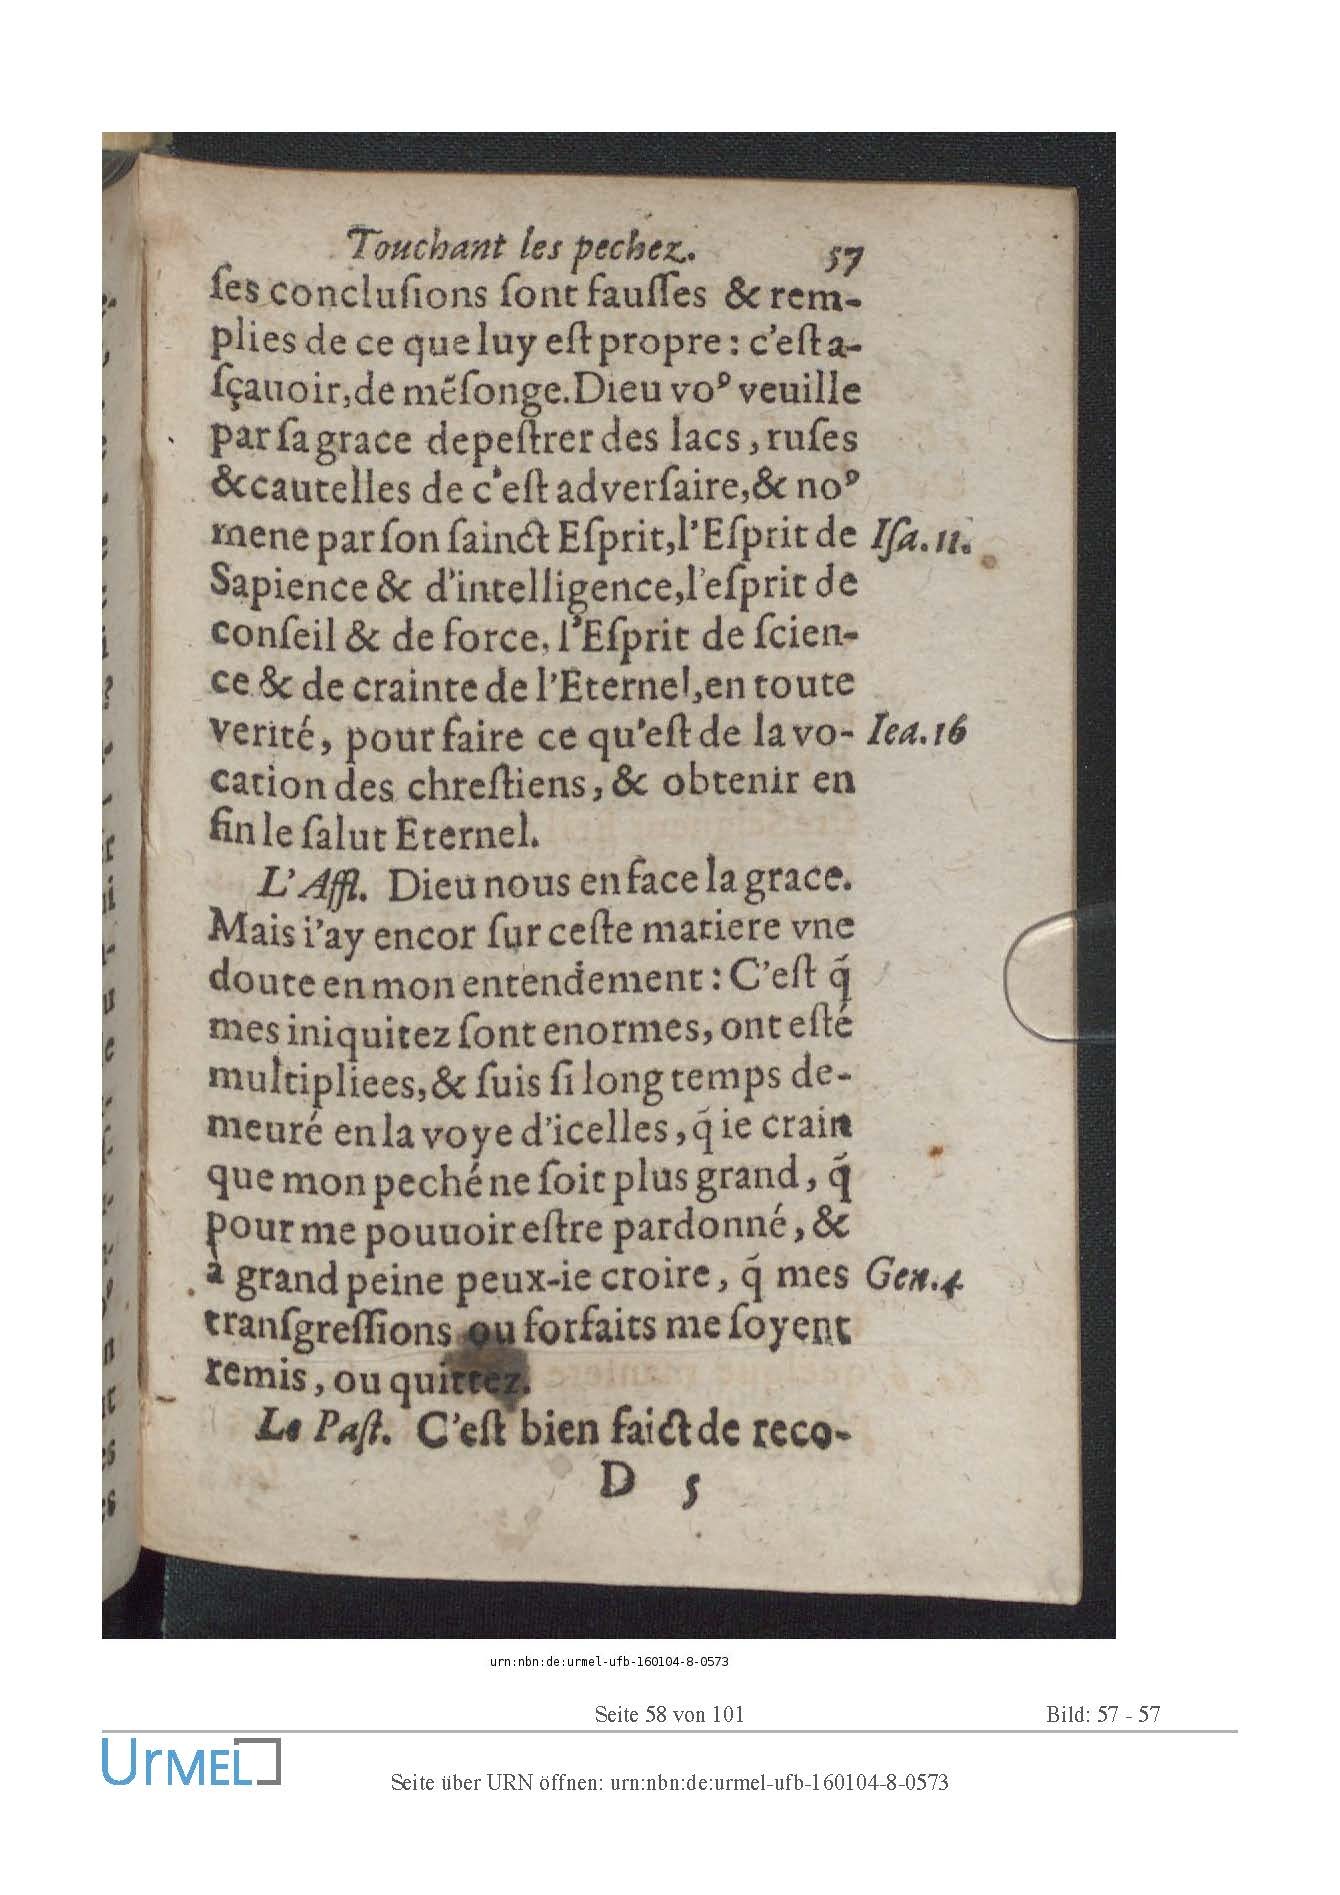 Touchant les pechez. 57
ſes concluſions ſont fauſſes & rem-
plies de ce que luy eſt propre : c'eſt a-
ſçauoir, de mẽſonge. Dieu voꝰ veuille
par ſa grace depeſtrer des lacs, ruſes
& cautelles de c'eſt adverſaire, & noꝰ
mene par ſon ſainct Eſprit, l'Eſprit de Iſa. 11.
Sapience & d'intelligence, l'eſprit de
conſeil & de force, l'Eſprit de ſcien-
ce & de crainte de l'Eternel, en toute
verité, pour faire ce qu'eſt de la vo- Iea. 16
cation des chreſtiens, & obtenir en
fin le ſalut Eternel.
L'Affl. Dieu nous en face la grace.
Mais i'ay encor ſur ceſte matiere vne
doute en mon entendement : C'eſt q̃
mes iniquitez ſont enormes, ont eſté
multipliees, & ſuis ſi long temps de-
meuré en la voye d'icelles, q̃ ie crain
que mon peché ne ſoit plus grand, q̃
pour me pouuoir eſtre pardonné, &
à grand peine peux-ie croire, q̃ mes Gen. 4
tranſgreſſions ou forfaits me ſoyent
remis, ou quittez.
Le Paſt. C'eſt bien faict de reco-
D 5
urn:nbn:de:urmel-ufb-160104-8-0573
Seite 58 von 101 Bild: 57 - 57
UrMEL
Seite über URN öffnen: urn:nbn:de:urmel-ufb-160104-8-0573